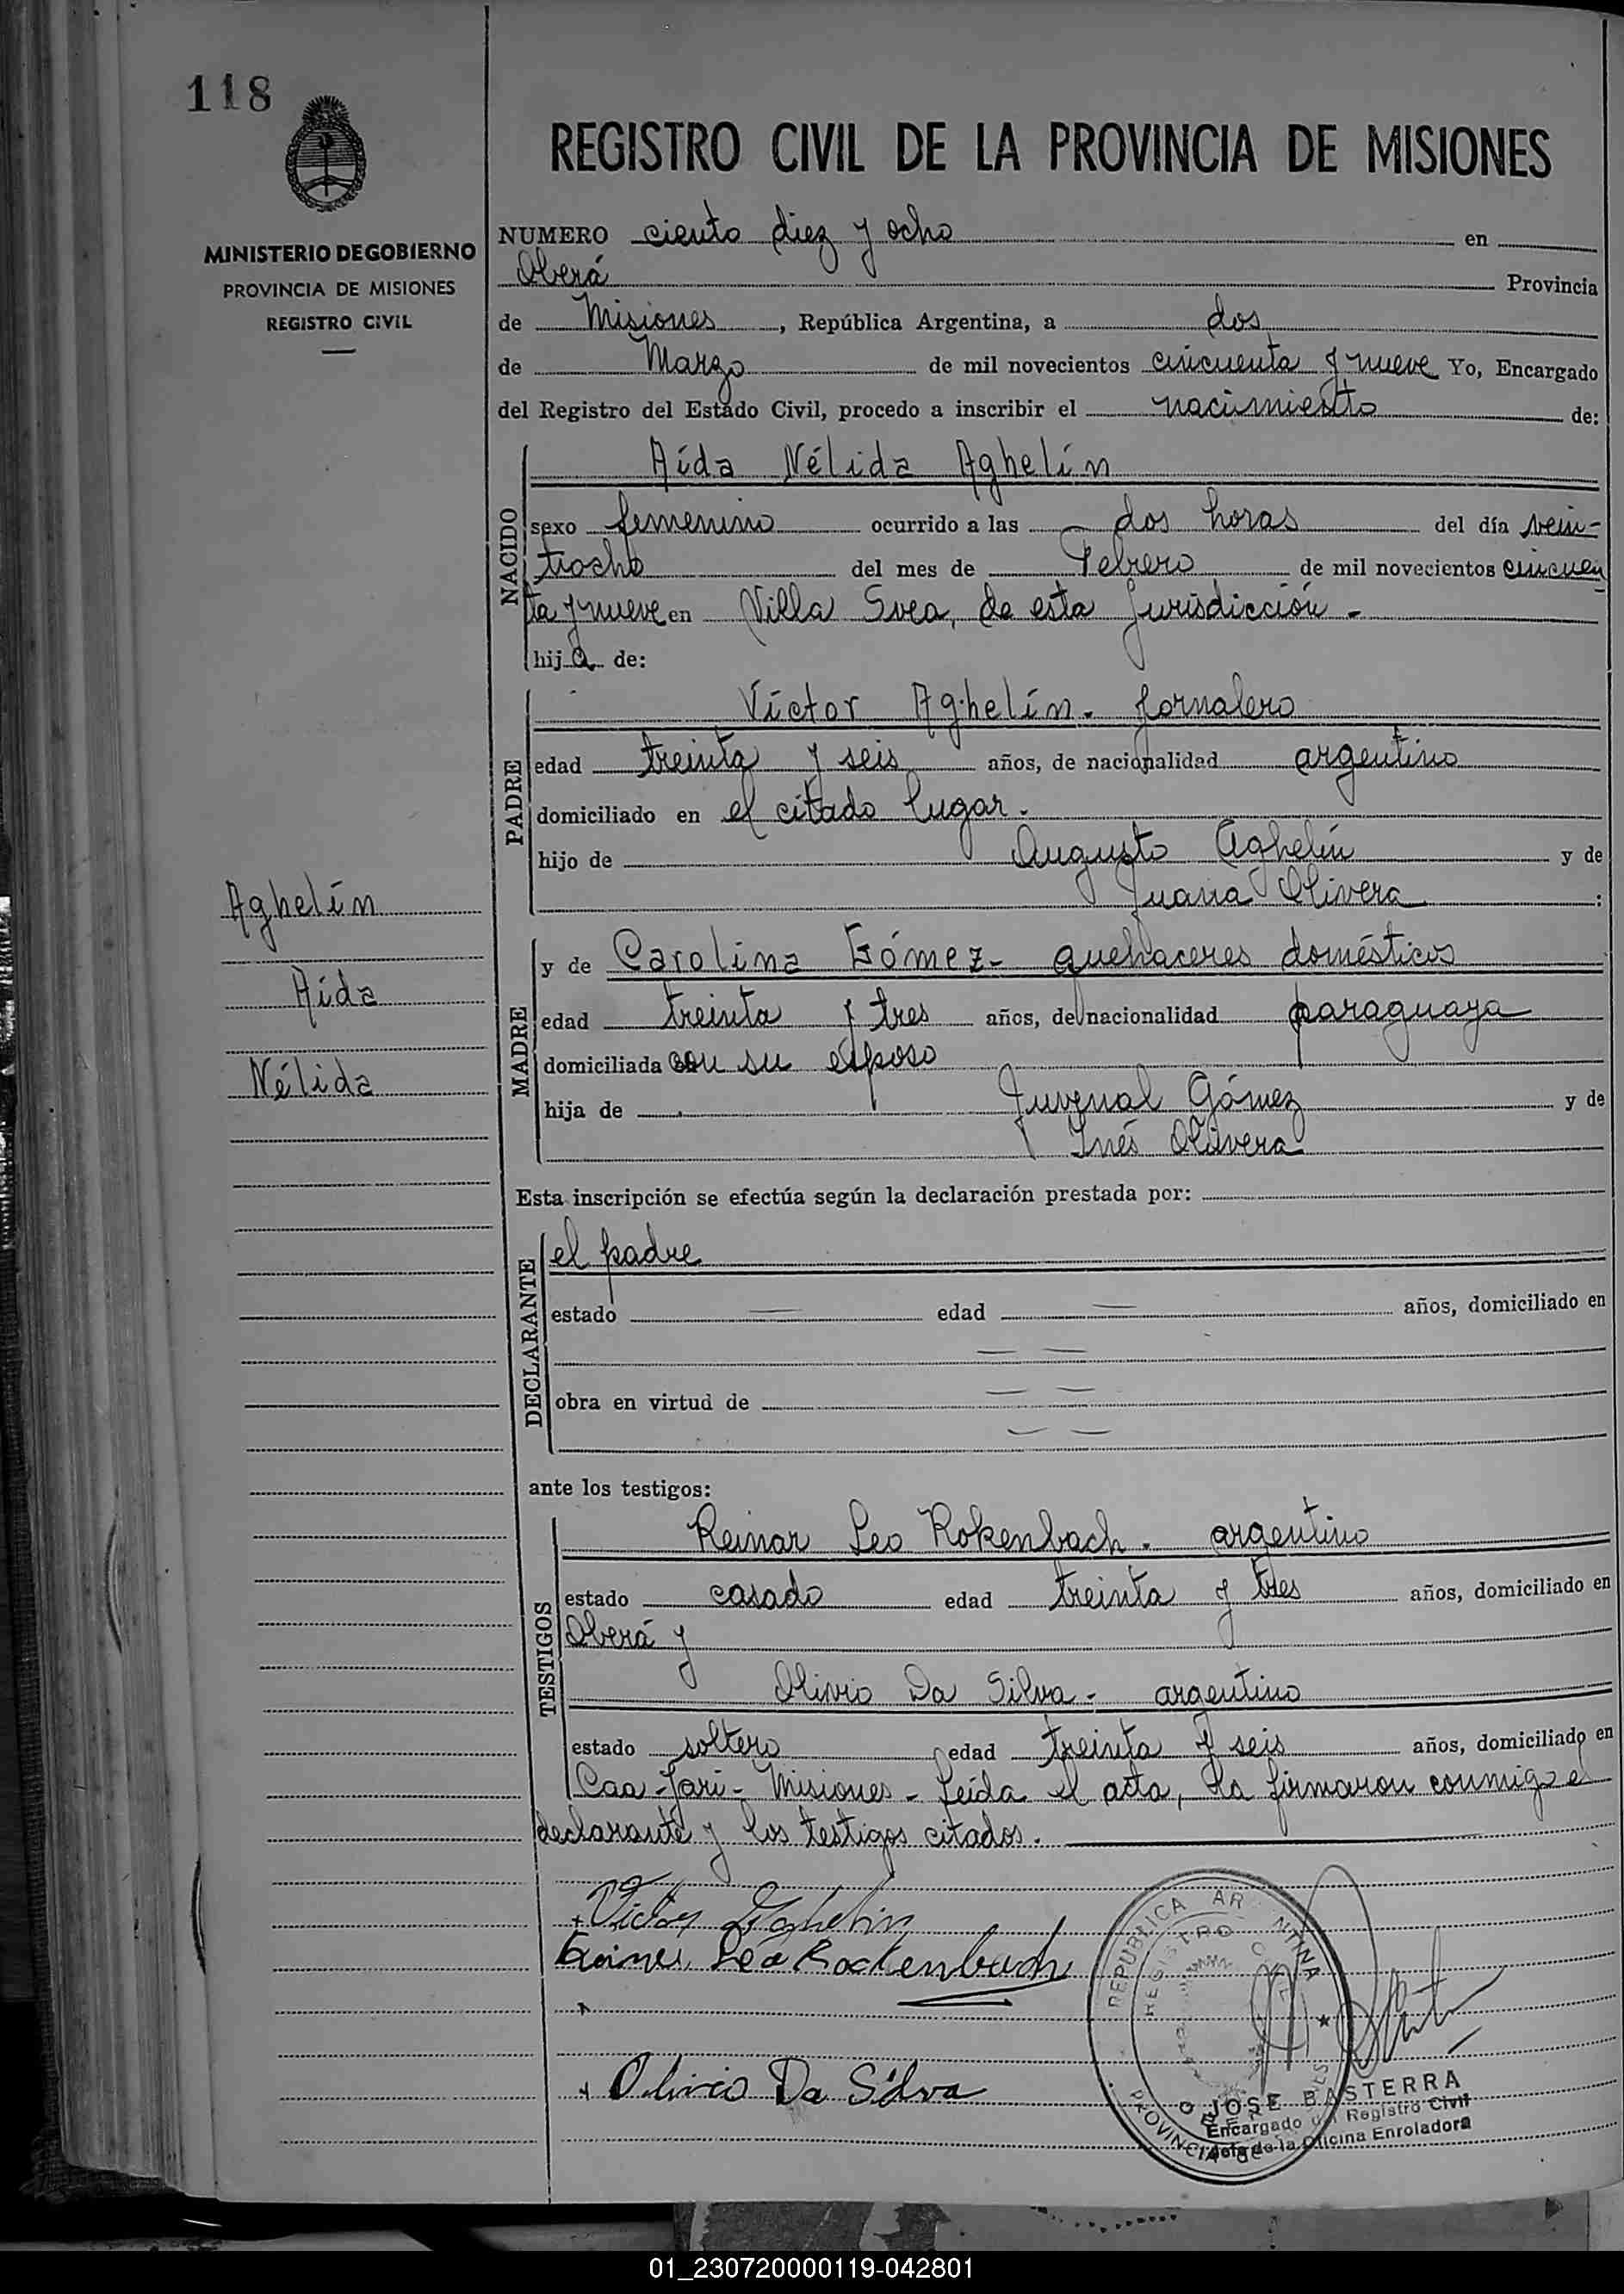 118
MINISTERIO DE GOBIERNO
PROVINCIA DE MISIONES
REGISTRO CIVIL
REGISTRO CIVIL DE LA PROVINCIA DE MISIONES
NUMERO ciento diez y ocho en
Oberá Provincia
de Misiones, República Argentina, a dos
de Marzo de mil novecientos cincuenta y nueve Yo, Encargado
del Registro del Estado Civil, procedo a inscribir el nacimiento de:
NACIDO
Aída Nélida Aghelín
sexo femenino ocurrido a las dos horas del día vein-
tiocho del mes de Febrero de mil novecientos cincuen
ta y nueve en Villa Svea, de esta Jurisdicción -
hija de:
PADRE
Víctor Aghelín. Jornalero
edad treinta y seis años, de nacionalidad argentino
domiciliado en el citado lugar.
hijo de Augusto Aghelín y de
Juana Olivera :
Aghelín
Aída
Nélida
MADRE
y de Carolina Gómez - quehaceres domésticos
edad treinta y tres años, de nacionalidad paraguaya
domiciliada con su esposo
hija de Juvenal Gómez y de
Inés Olivera
Esta inscripción se efectúa según la declaración prestada por:
DECLARANTE
el padre
estado — edad — años, domiciliado en
— —
obra en virtud de — —
— —
ante los testigos:
TESTIGOS
Reinar Leo Rokenbach. argentino
estado casado edad treinta y tres años, domiciliado en
Oberá y
Olivio Da Silva - argentino
estado soltero edad treinta y seis años, domiciliado en
Caa-Yari - Misiones - Leída el acta, la firmaron conmigo el
declarante y los testigos citados.
Victor Aghelin
Leo Rockenbach
Olivio Da Silva
REPUBLICA ARGENTINA
REGISTRO CIVIL
PROVINCIA DE MISIONES
JOSE BASTERRA
Encargado del Registro Civil
Jefe de la Oficina Enroladora
01_230720000119-042801